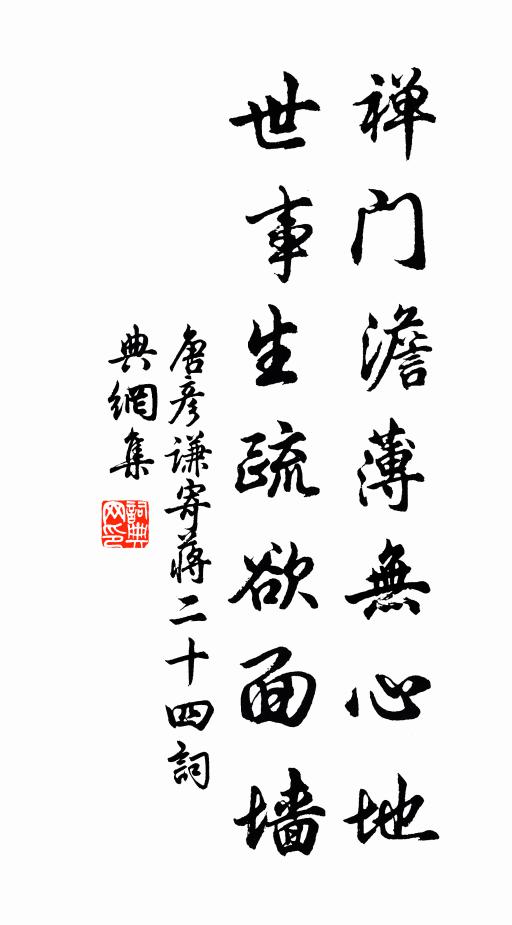 禅门澹薄無心地
世事生疏欲面墙
唐彦谦寄蒋二十四詞
典網集
詞典网印